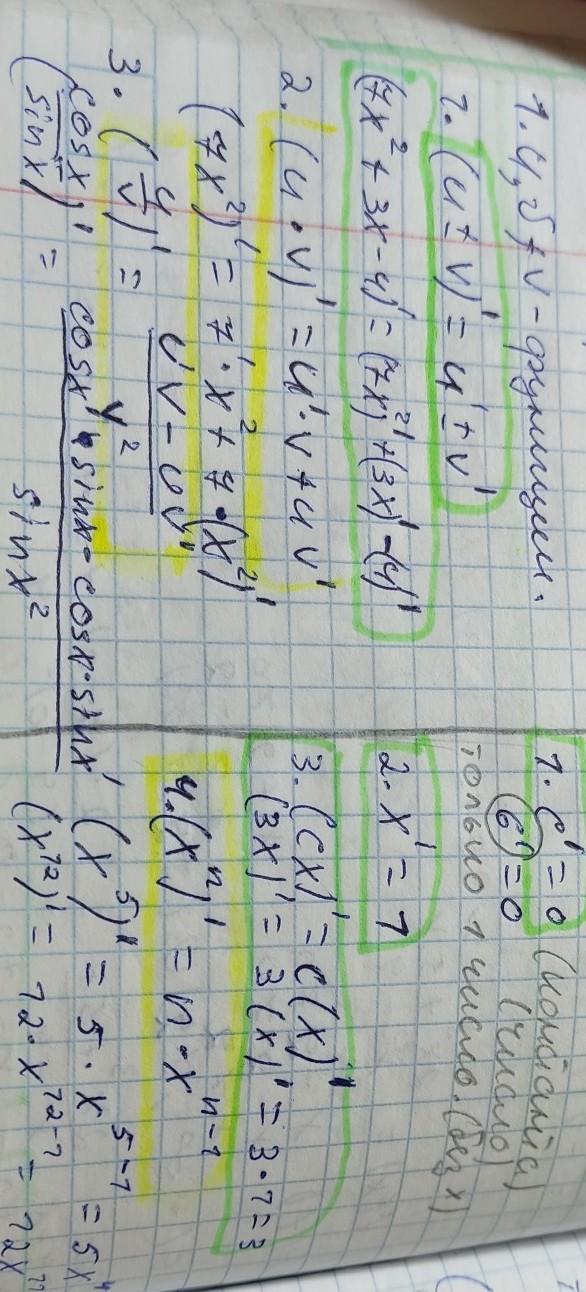 1. u, v + v - функции.
1. (u ± v)' = u' ± v'
(7x² + 3x - 4)' = (7x²)' + (3x)' - (4)'
2. (u · v)' = u' · v + u v'
(7x²)' = 7' · x² + 7 · (x²)'
3. (u/v)' = (u'v - uv')/v²
(cosx/sinx)' = (cosx' · sinx - cosx · sinx')/sinx²
1. c' = 0 (константа)
6' = 0 (число)
только 1 число. (без x)
2. x' = 1
3. (cx)' = c(x)'
(3x)' = 3(x)' = 3 · 1 = 3
4. (xⁿ)' = n · xⁿ⁻¹
(x⁵)' = 5 · x⁵⁻¹ = 5x⁴
(x¹²)' = 12 · x¹²⁻¹ = 12x¹¹